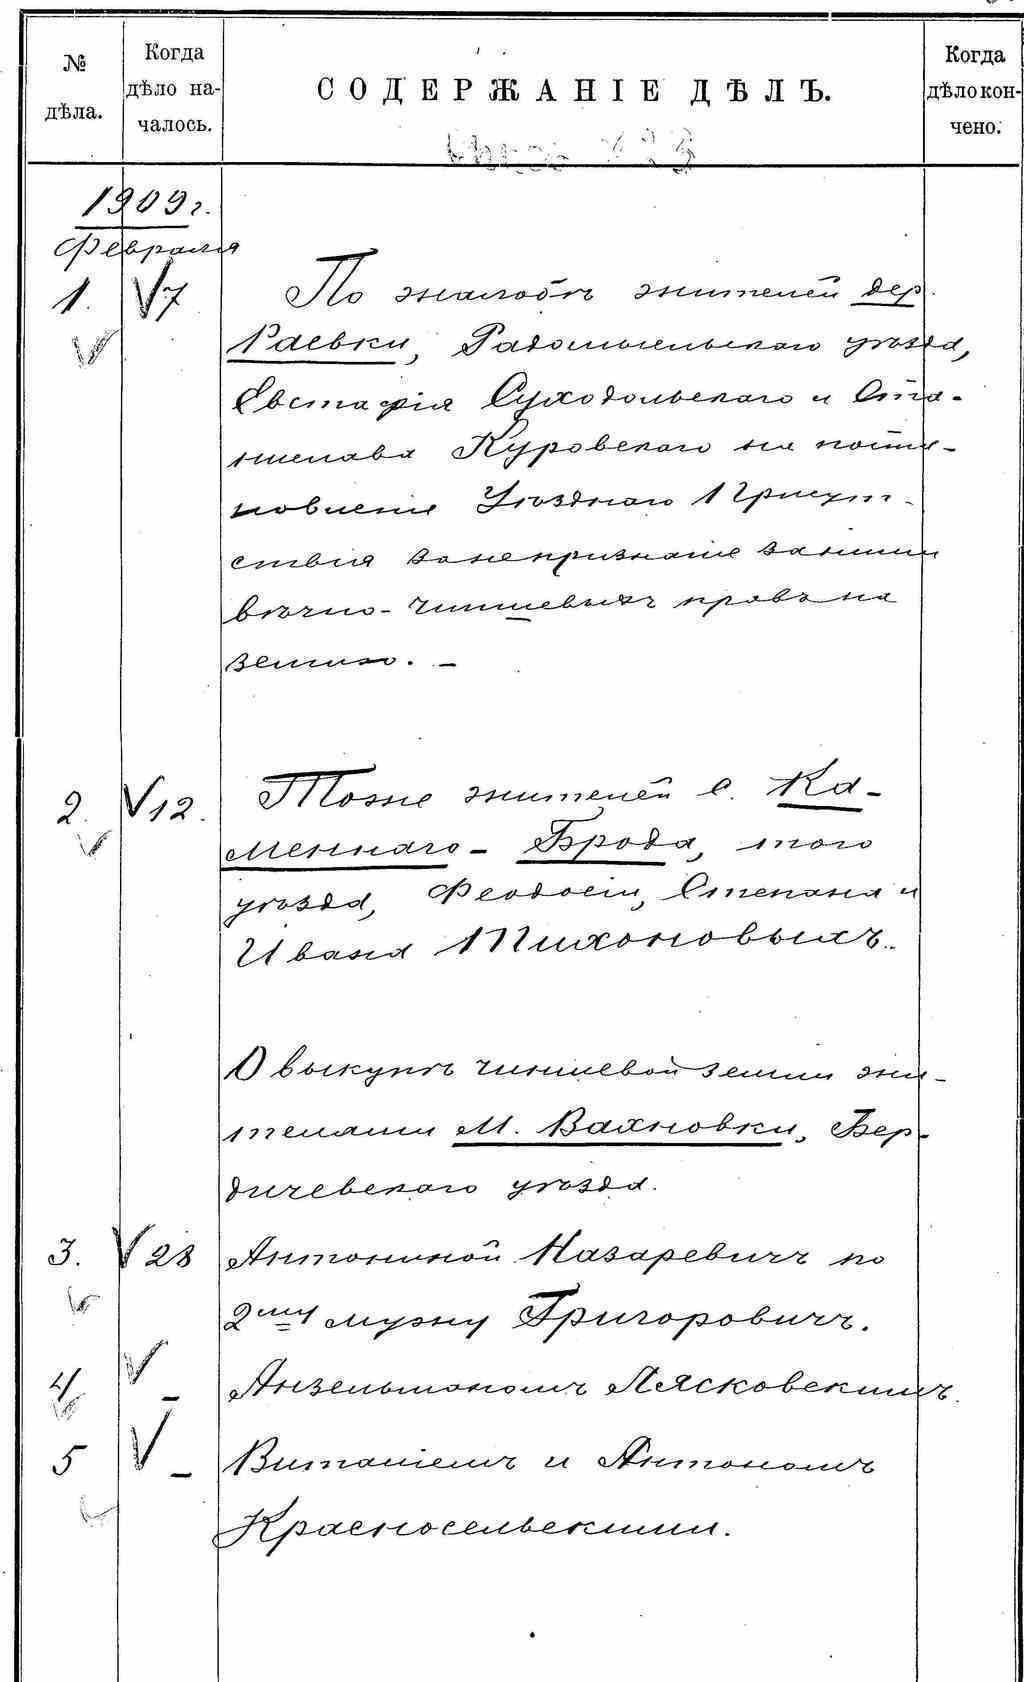 № дѣла.
Когда дѣло началось.
СОДЕРЖАНІЕ ДѢЛЪ.
Когда дѣло кончено.
1909 г.
Февраля
1. 7 По жалобѣ жителей дер.
Раевки, Радомысльскаго уѣзда,
Евстафія Суходольскаго и Ста-
нислава Куровскаго на поста-
новленіе Уѣзднаго Присут-
ствія за непризнаніе за ними
вѣчно-чиншевыхъ правъ на
землю. –
2. 12. Тоже жителей с. Ка-
меннаго-Брода, того
уѣзда, Феодосіи, Степана и
Ивана Тихоновыхъ.
О выкупѣ чиншевой земли жи-
телями м. Вахновки, Бер-
дичевскаго уѣзда.
3. 28 Антониной Назаревичъ по
2му мужу Григоровичъ.
4 – Анзельмономъ Лясковскимъ.
5 – Виталіемъ и Антономъ
Красносельскими.